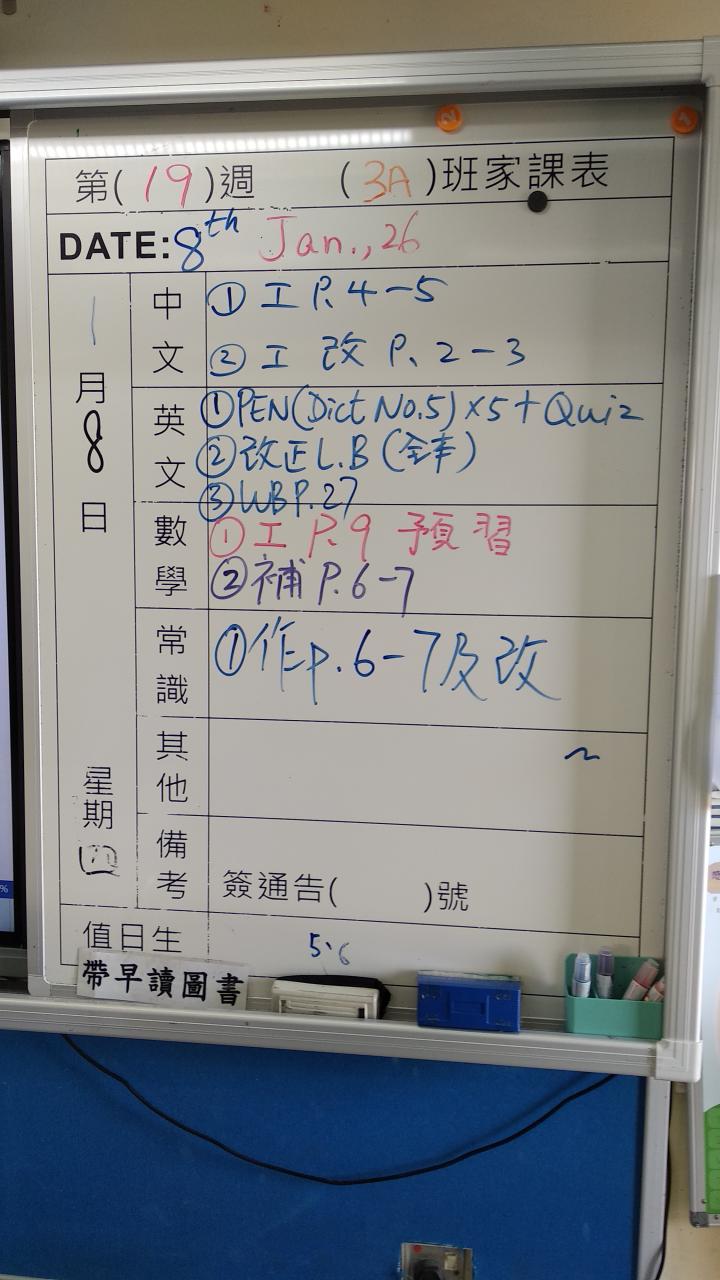 第(19)週 (3A)班家課表
DATE: 8th Jan., 26
1月8日 星期四
中文
① 工 P. 4-5
② 工 改 P. 2-3
英文
① PEN(Dict No.5)×5+Quiz
② 改正 L.B (全本)
③ WB P.27
數學
① 工 P. 9 預習
② 補 P. 6-7
常識
① 作 p. 6-7及改
其他
~
備考
簽通告( )號
值日生
5.6
帶早讀圖書